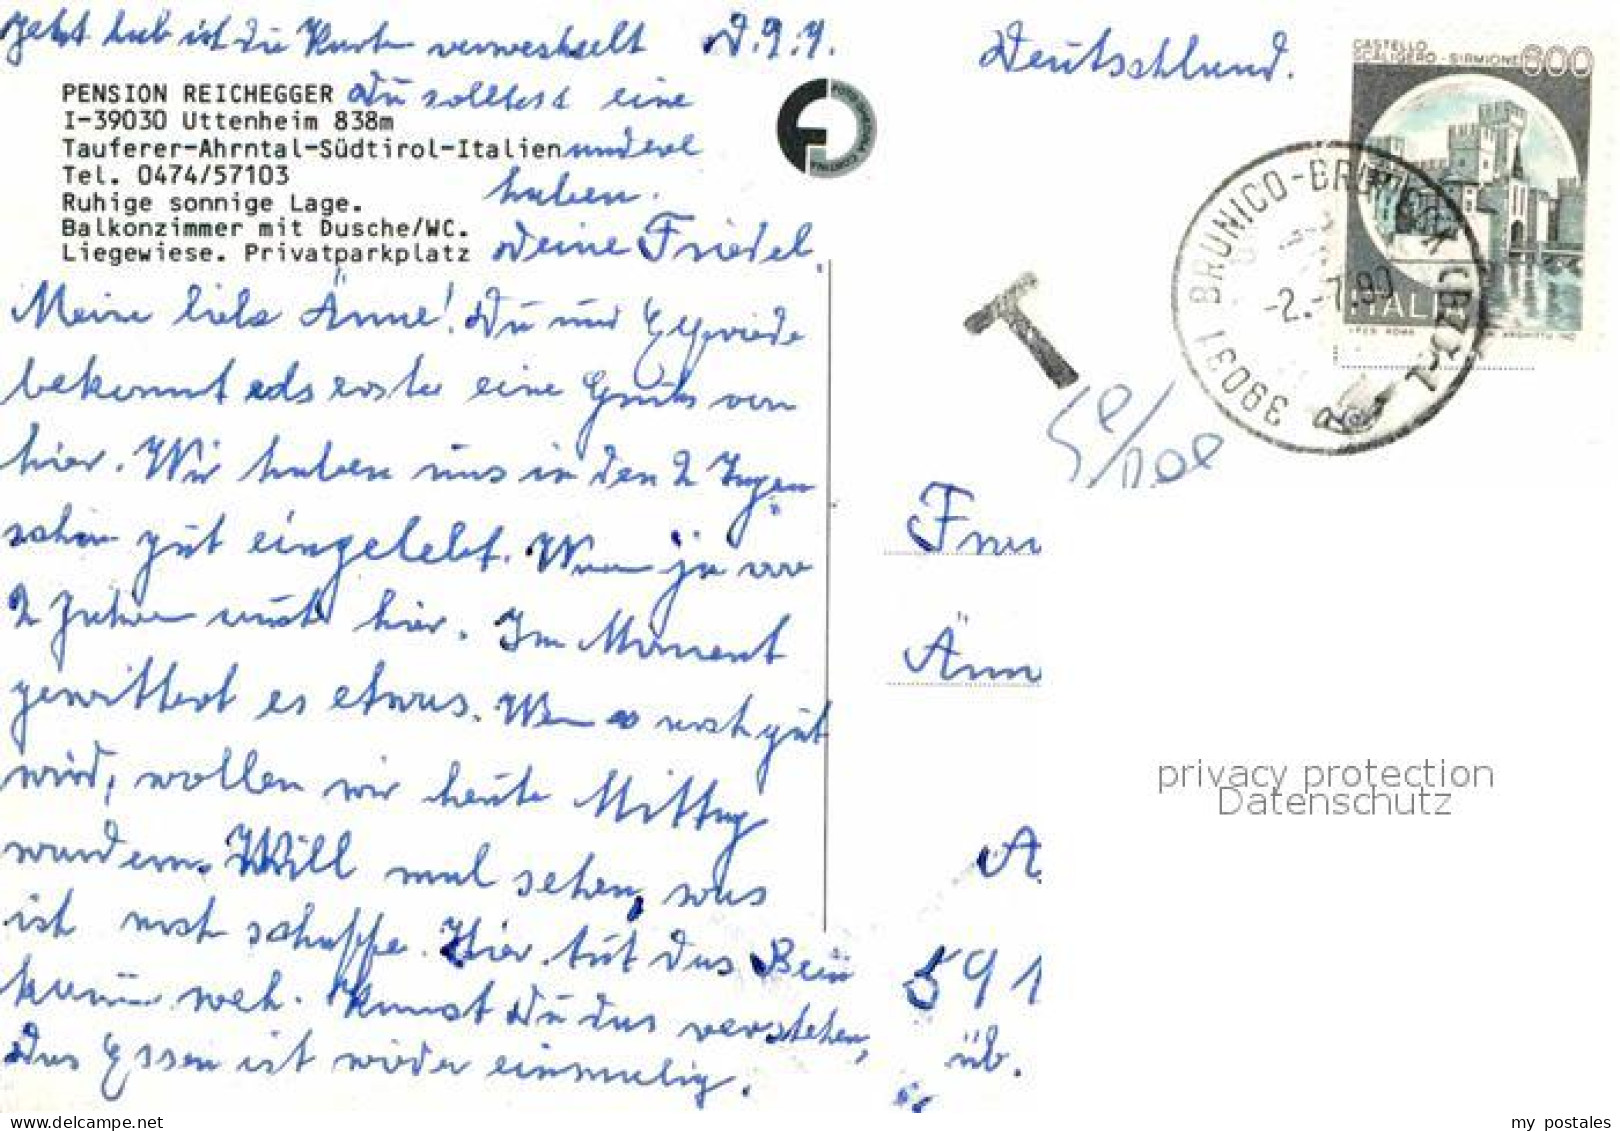 Jetzt hab ich die Karten verwechselt D. 9. 7.
Du solltest eine
andere
haben.
Deine Friedel.
PENSION REICHEGGER
I-39030 Uttenheim 838m
Tauferer-Ahrntal-Südtirol-Italien
Tel. 0474/57103
Ruhige sonnige Lage.
Balkonzimmer mit Dusche/WC.
Liegewiese. Privatparkplatz
Meine liebe Änne! Du und Elfriede
bekommt als erste eine Gruß von
hier. Wir haben uns in den 2 Tagen
schon gut eingelebt. Waren ja vor
2 Jahren auch hier. Im Moment
gewittert es etwas. Wenn es noch gut
wird, wollen wir heute Mittag
wandern. Will mal sehen, was
ich noch schaffe. Hier tut das Bein
kaum weh. Kannst Du das verstehen,
Das Essen ist wieder einmalig.
Deutschland.
CASTELLO
SCALIGERO - SIRMIONE 600
ITALIA
I.P.Z.S. ROMA
39031 BRUNICO-BRUNECK (BZ)
-2.-7.90
T
Frau
Änn
A
591
üb.
privacy protection
Datenschutz
www.delcampe.net
my_postales